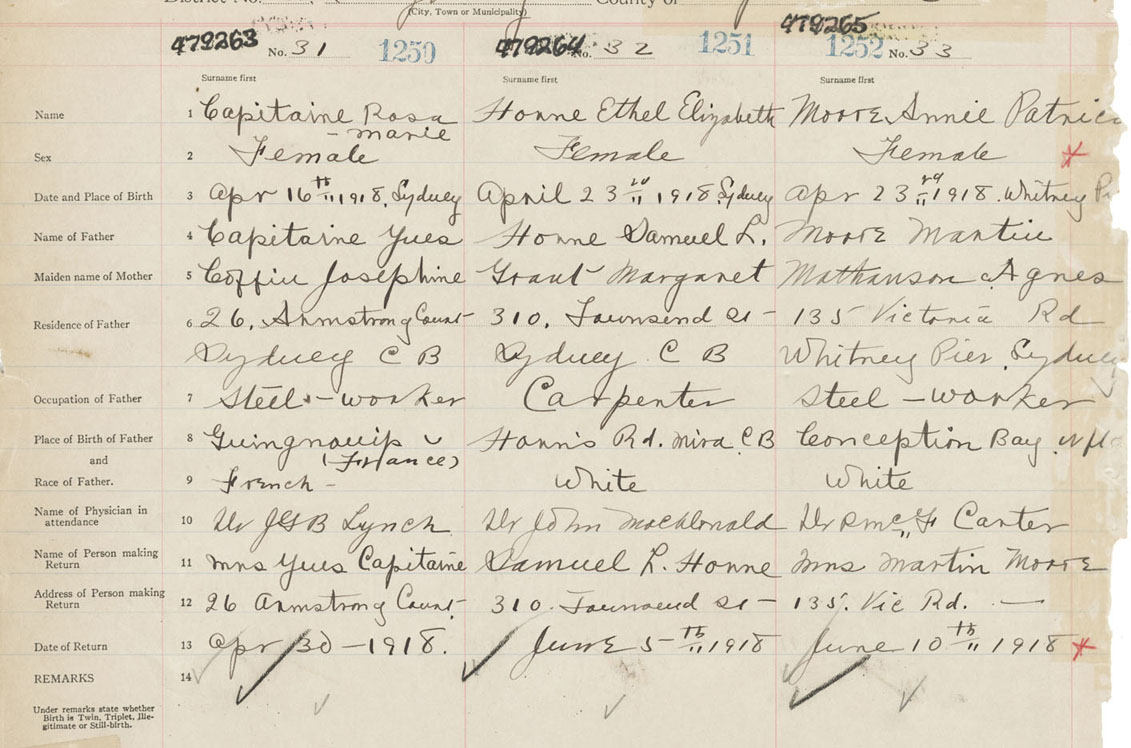 (City, Town or Municipality) County of
479263 No. 31 1250 479264 No. 32 1251 479265 1252 No. 33
Surname first Surname first Surname first
Name 1 Capitaine Rosa Horne Ethel Elizabeth Moore Annie Patrici
- Marie
Sex 2 Female Female Female
Date and Place of Birth 3 Apr 16th 1918, Sydney April 23rd 1918 Sydney Apr 23rd 1918. Whitney P
Name of Father 4 Capitaine Yves Horne Samuel L. Moore Martin
Maiden name of Mother 5 Coffin Josephine Grant Margaret Mathanson Agnes
Residence of Father 6 26, Armstrong Court 310, Townsend St - 135 Victoria Rd
Sydney C B Sydney C B Whitney Pier, Sydney
Occupation of Father 7 Steel - worker Carpenter Steel - worker
Place of Birth of Father 8 Horn's Rd. Mira, C B Conception Bay. Nfld
and (France)
Race of Father. 9 French - White White
Name of Physician in
attendance 10 Dr J G B Lynch Dr John MacDonald Dr R McF Carter
Name of Person making
Return 11 Mrs Yves Capitaine Samuel L. Horne Mrs Martin Moore
Address of Person making
Return 12 26 Armstrong Court - 310. Townsend St - 135. Vic Rd. —
Date of Return 13 Apr 30 - 1918. June 5th 1918 June 10th 1918
REMARKS 14
Under remarks state whether
Birth is Twin, Triplet, Ille-
gitimate or Still-birth.